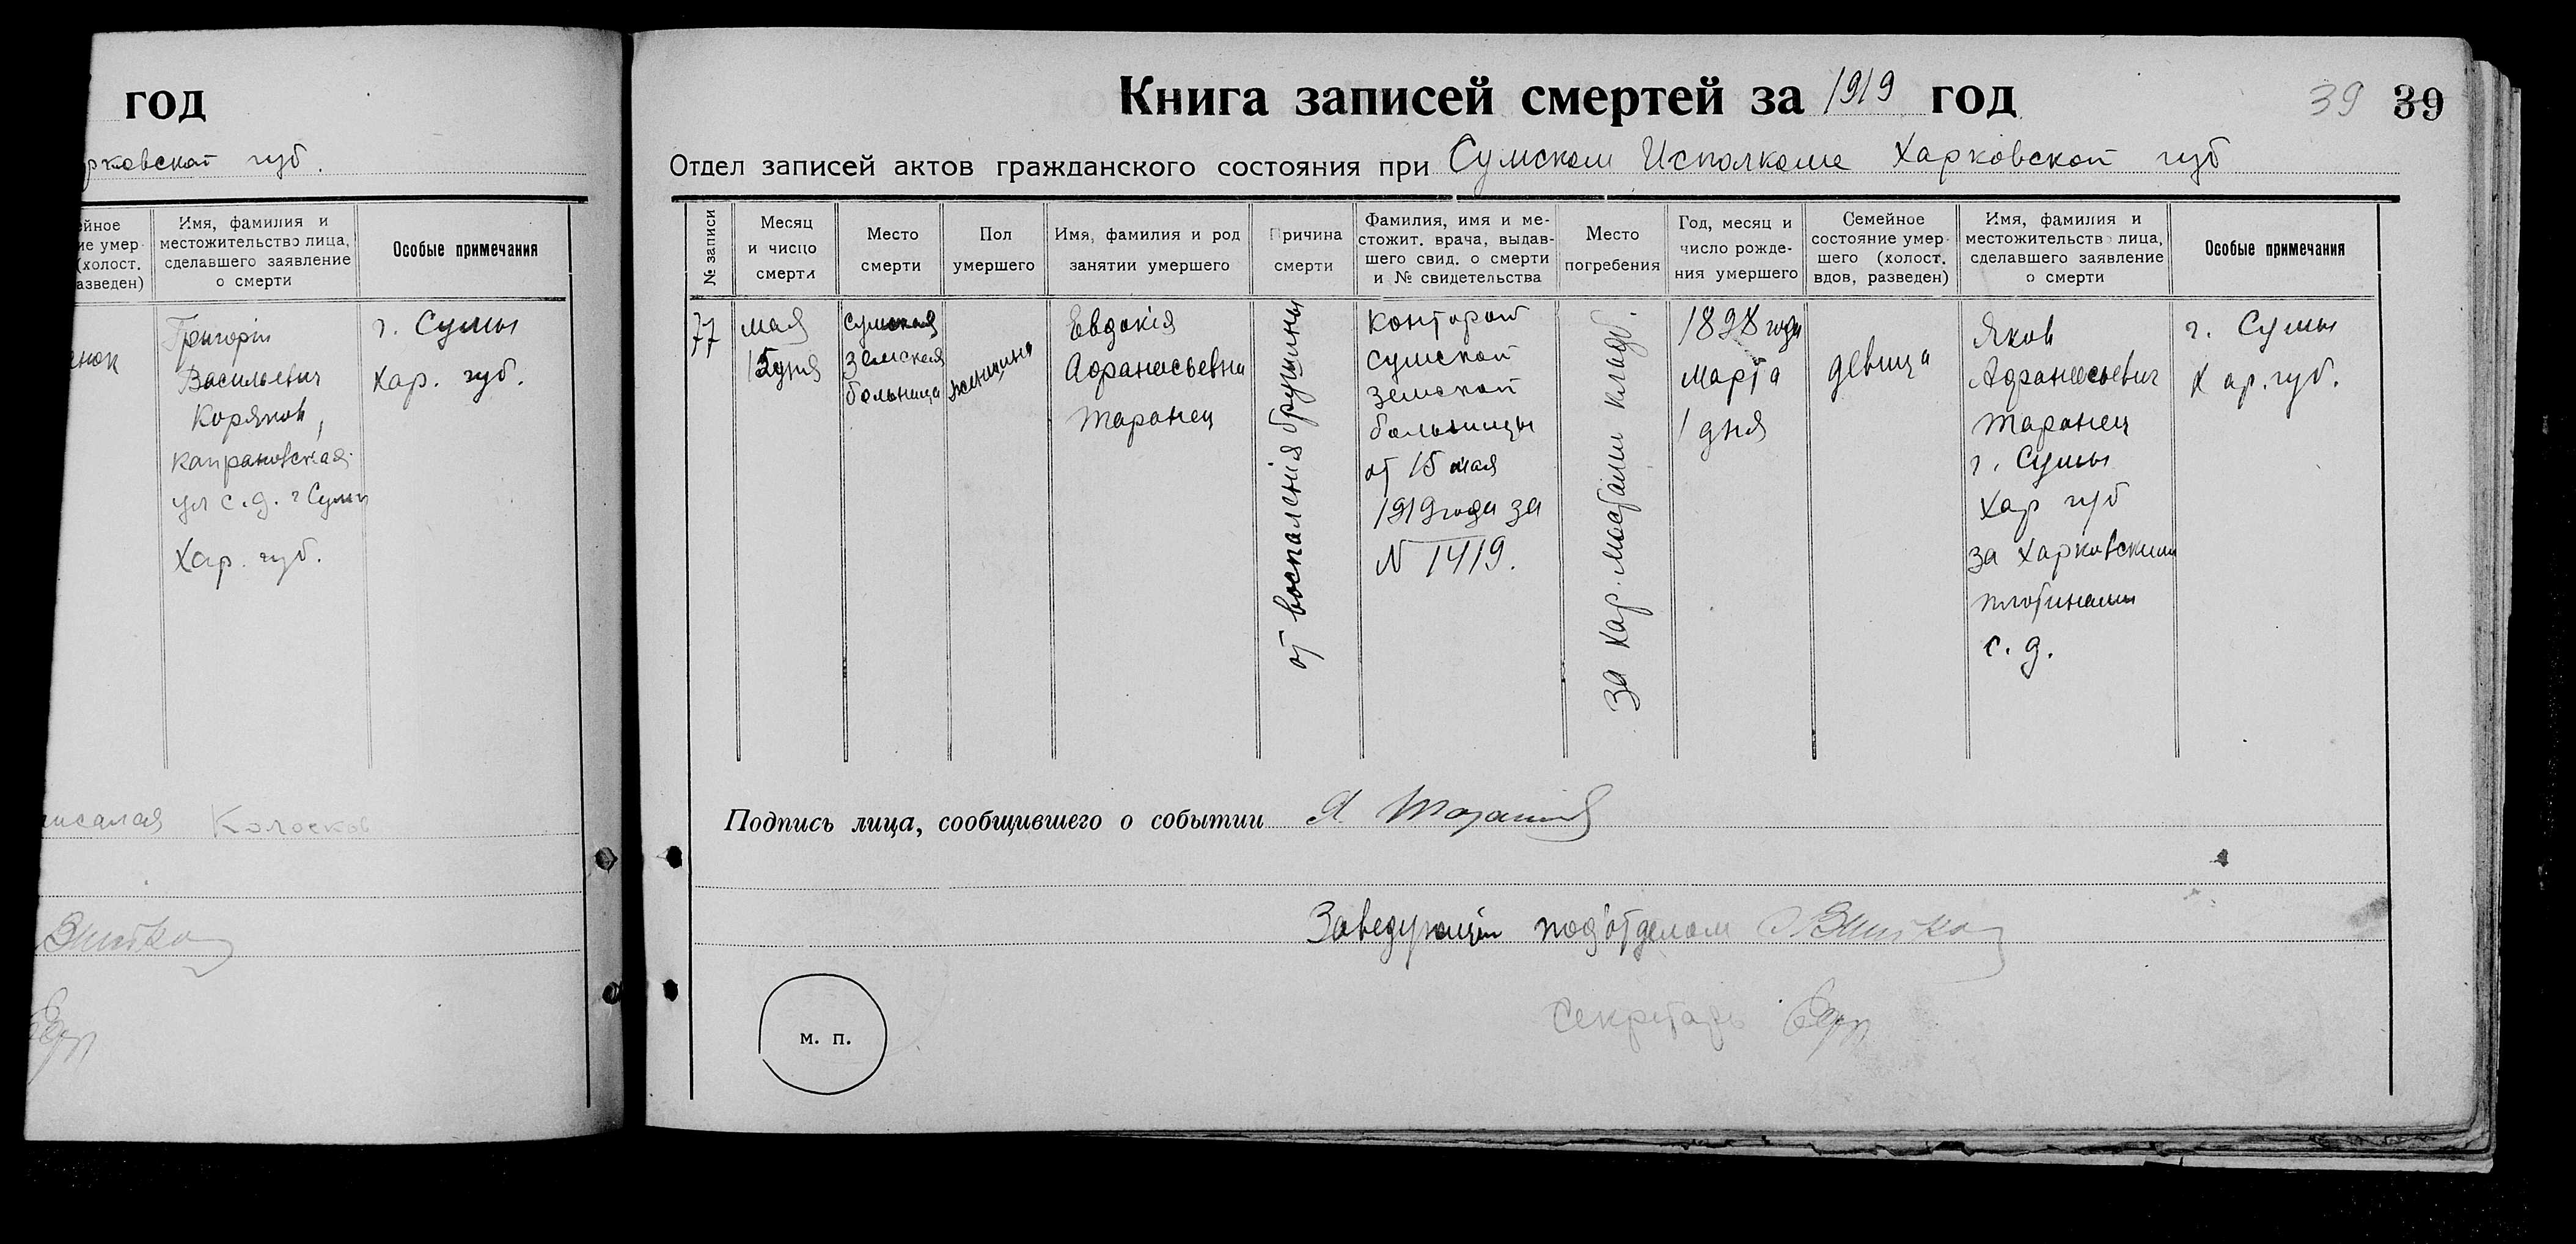 год
рковской губ.
ейное
ие умер-
(холост.
азведен)
Имя, фамилия и
местожительство лица,
сделавшего заявление
о смерти
Особые примечания
Григорій
Васильевич
Коряков,
Капрановская
ул с. д. г Сумы
Хар. губ.
г. Сумы
Хар. губ.
Колосков
Книга записей смертей за 1919 год
39 39
Отдел записей актов гражданского состояния при Сумском Исполкоме Харковской губ
№ записи
Месяц
и число
смерти
Место
смерти
Пол
умершего
Имя, фамилия и род
занятии умершего
Причина
смерти
Фамилия, имя и ме-
стожит. врача, выдав-
шего свид. о смерти
и № свидетельства
Место
погребения
Год, месяц и
число рожде-
ния умершего
Семейное
состояние умер-
шего (холост.
вдов, разведен)
Имя, фамилия и
местожительство лица,
сделавшего заявление
о смерти
Особые примечания
77
мая
15 дня
Сумская
земская
больница
женщина
Евдокія
Афанасьевна
Таранец
от воспаленія брушины
Конторой
сумской
земской
больницы
от 15 мая
1919 года за
N 1419.
за Хар. мостами кладб.
1898 года
Марта
1 дня
дѣвица
Яков
Афанасьевич
Таранец
г. Сумы
Хар губ
за Харковскими
плотинами
с. д.
г. Сумы
Хар. губ.
Подпись лица, сообщившего о событии Я.
Заведующій подотделом
Секретарь
м. п.